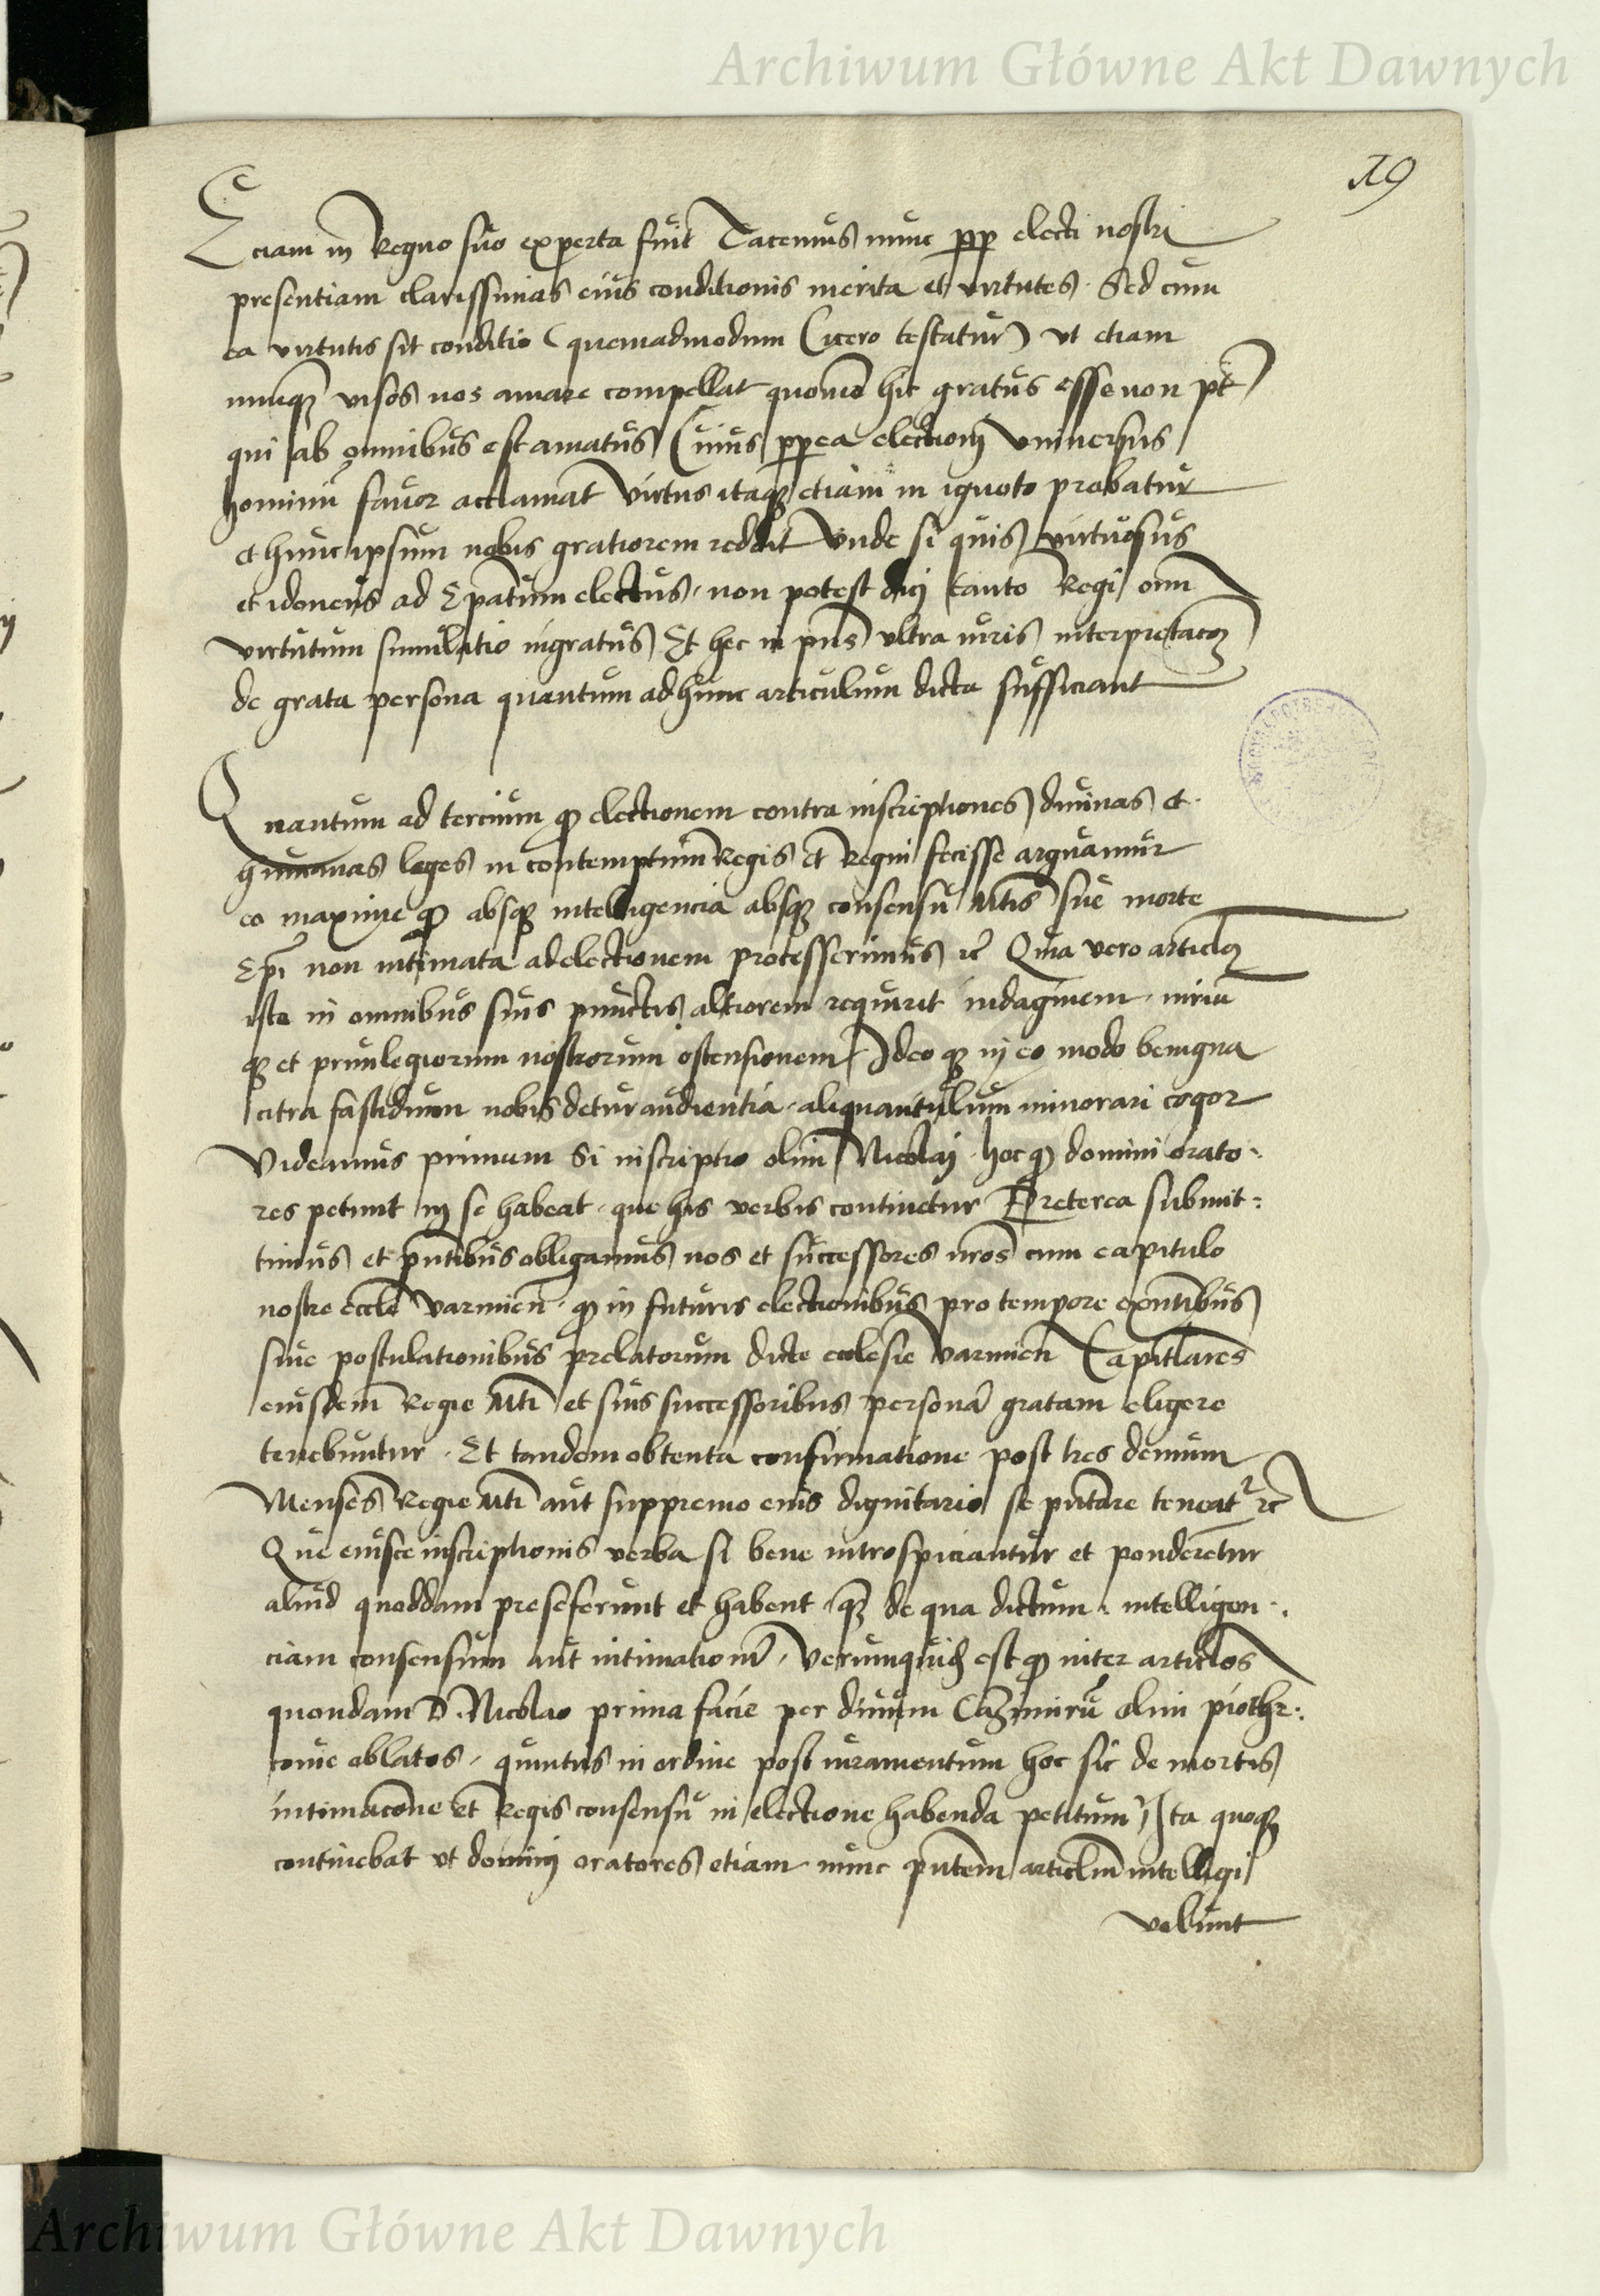 Archiwum Główne Akt Dawnych
19
Eciam in Regno suo experta fuit Tacemus nunc ppp electi nostri
presentiam clarissimas eius conditionis merita et virtutes. Sed cum
ea virtutis sit conditio (quemadmodum Cicero testatur) ut etiam
nunq̃ visos nos amare compellat quomõ hic gratus esse non pt̃
qui ab omnibus est amatus Cuius pp ea electioñ vniuersus
hominũ fauor acclamat Virtus itaq; etiam in ignoto probatur
et hunc ipsum nobis gratiorem reddit Vnde si quis virtuosus
et idoneus ad Ep̃atum electus, non potest dici tanto Regi om̃
virtutum simulatio ingratus Et hec in pñs vltra iuris interpretacõ
de grata persona quantum ad hunc articulum dicta sufficiant
Quantum ad tercium ꝙ electionem contra inscriptiones diuinas et
humanas leges in contemptum Regis et Regni fecisse arguamur
eo maxime ꝙ absq; intelligencia absq; consensu Mt̃is sue morte
Ep̃i non intimata ad electionem processerimus rc̃ Quia vero articl̃us
iste in omnibus suis punctis altiorem requirit indaginem iuriũ
q; et priuilegiorum nostrorum ostensionem Ideo q; in eo modo benigna
citra fastidium nobis detur audientia, aliquantulum minorari cogor
Videamus primum Si inscriptio olim Nicolaj hoc ꝙ domini orato:
res petunt in se habeat, que his verbis continetur Preterea submit:
timus et pñtibus obligamus nos et successores nr̃os cum capitulo
nostre eccl̃e Varmieñ, ꝙ in futuris electionibus pro tempore exñtibus
siue postulationibus prelatorum dicte ecclesie Varmieñ Capitl̃ares
eiusdem Regie Mt̃i et suis successoribus personã gratam eligere
tenebuntur. Et tandem obtenta confirmatione post tres demum
Menses Regie Mt̃i aut suppremo eius dignitario se pñtare teneatr rc̃
Que eiusce inscriptionis verba si bene introspiciantur et ponderetur
aliud quoddam preseferunt et habent, q̃ de qua dictum, intelligen:
ciam consensum aut intimationẽ, Verumquid est ꝙ inter articl̃os
quondam D. Nicolao prima facie per diuum Cazimirũ olim piothr:
couie oblatos, quintus in ordine post iuramentum hoc sic de mortis
intimacõne et Regis consensu in electione habenda petitum Ita quoq;
continebat vt domini oratores etiam nunc pñtem articl̃m intelligi
volunt
Archiwum Główne Akt Dawnych